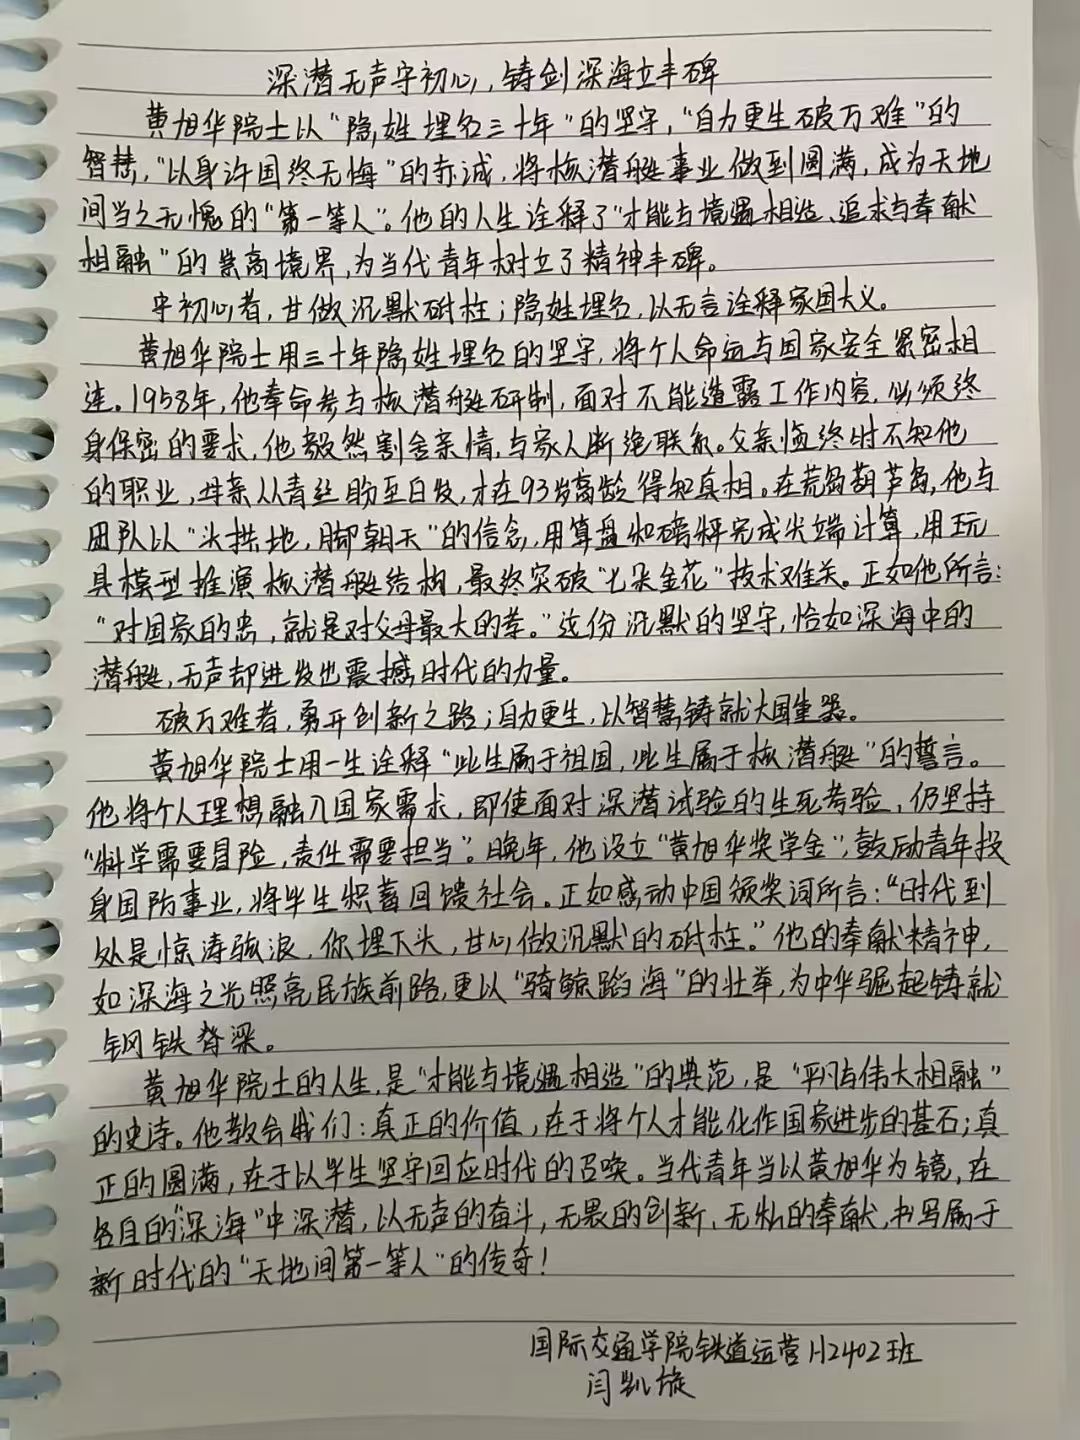 深潜无声守初心，铸剑深海立丰碑
黄旭华院士以“隐姓埋名三十年”的坚守，“自力更生破万难”的
智慧，“以身许国终无悔”的赤诚，将核潜艇事业做到圆满，成为天地
间当之无愧的“第一等人”。他的人生诠释了“才能与境遇相造、追求与奉献
相融”的崇高境界，为当代青年树立了精神丰碑。
守初心者，甘做沉默砥柱；隐姓埋名，以无言诠释家国大义。
黄旭华院士用三十年隐姓埋名的坚守，将个人命运与国家安全紧密相
连。1958年，他奉命参与核潜艇研制，面对不能透露工作内容，必须终
身保密的要求，他毅然割舍亲情，与家人断绝联系。父亲临终时不知他
的职业，母亲从青丝盼至白发，才在93岁高龄得知真相。在荒岛葫芦岛，他与
团队以“头拱地，脚朝天”的信念，用算盘和磅秤完成尖端计算，用玩
具模型推演核潜艇结构，最终突破“七朵金花”技术难关。正如他所言：
“对国家的忠，就是对父母最大的孝。”这份沉默的坚守，恰如深海中的
潜艇，无声却迸发出震撼时代的力量。
破万难者，勇开创新之路；自力更生，以智慧铸就大国重器。
黄旭华院士用一生诠释“此生属于祖国，此生属于核潜艇”的誓言。
他将个人理想融入国家需求，即使面对深潜试验的生死考验，仍坚持
“科学需要冒险，责任需要担当”。晚年，他设立“黄旭华奖学金”，鼓励青年投
身国防事业，将毕生积蓄回馈社会。正如感动中国颁奖词所言：“时代到
处是惊涛骇浪，你埋下头，甘心做沉默的砥柱。”他的奉献精神，
如深海之光照亮民族前路，更以“骑鲸蹈海”的壮举，为中华崛起铸就
钢铁脊梁。
黄旭华院士的人生，是“才能与境遇相造”的典范，是“平凡与伟大相融”
的史诗。他教会我们：真正的价值，在于将个人才能化作国家进步的基石；真
正的圆满，在于以毕生坚守回应时代的召唤。当代青年当以黄旭华为镜，在
各自的“深海”中深潜，以无声的奋斗，无畏的创新，无私的奉献，书写属于
新时代的“天地间第一等人”的传奇！
国际交通学院铁道运营H2402班
闫凯旋